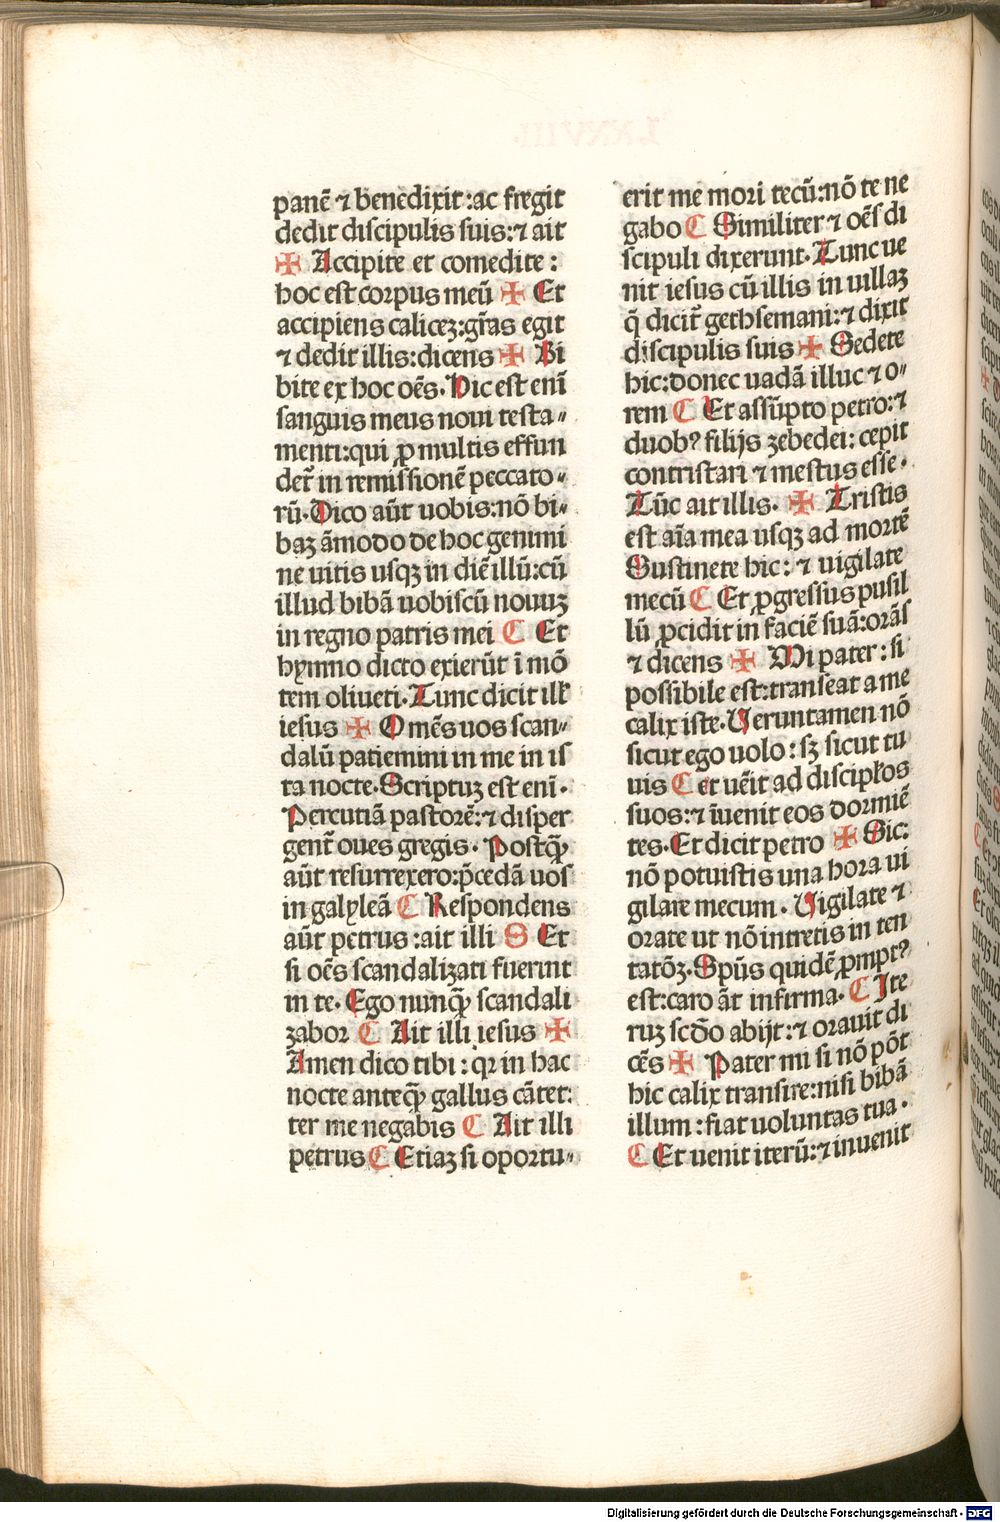 panē ⁊ benedixit:ac fregit
dedit discipulis suis:⁊ ait
✠ Accipite et comedite :
hoc est corpus meū ✠ Et
accipiens calicez:gr̄as egit
⁊ dedit illis:dicens ✠ Bi
bite ex hoc oēs. Hic est enī
sanguis meus noui testa-
menti:qui ꝓ multis effun
det᷑ in remissionē peccato-
rū. Dico aūt uobis:nō bi-
baz āmodo de hoc genimi
ne uitis usqz in diē illū:cū
illud bibā uobiscū nouuz
in regno patris mei C Et
hymno dicto exierūt ī mō
tem oliueti. Tunc dicit ill'
iesus ✠ Omēs uos scan-
dalū patiemini in me in is
ta nocte. Scriptuz est enī.
Percutiā pastorē:⁊ disper
gent᷑ oues gregis. Postꝙ̄
aūt resurrexero:p̄cedā uos
in galyleā C Respondens
aūt petrus :ait illi S Et
si oēs scandalizati fuerint
in te. Ego nunꝙ̄ scandali
zabor C Ait illi iesus ✠
Amen dico tibi : qꝛ in hac
nocte anteꝙ̄ gallus cātet:
ter me negabis C Ait illi
petrus C Etiaz si oportu-
erit me mori tecū:nō te ne
gabo C Similiter ⁊ oēs di
scipuli dixerunt. Tunc ue
nit iesus cū illis in uillaz
q̄ dicit᷑ gethsemani:⁊ dixit
discipulis suis ✠ Sedete
hic:donec uadā illuc ⁊ o-
rem C Et assūpto petro:⁊
duobꝰ filijs zebedei: cepit
contristari ⁊ mestus esse.
Tūc ait illis. ✠ Tristis
est aīa mea usqz ad mortē
Sustinete hic: ⁊ uigilate
mecū C Et ꝓgressus pusil
lū ꝓcidit in faciē suā:orās
⁊ dicens ✠ Mi pater : si
possibile est:transeat a me
calix iste. Veruntamen nō
sicut ego uolo : sz sicut tu
uis C et uēit ad discipłos
suos:⁊ īuenit eos dormiē
tes. Et dicit petro ✠ Sic:
nō potuistis una hora ui
gilare mecum. Vigilate ⁊
orate ut nō intretis in ten
tatōz. Spūs quidē ꝓmptꝰ
est:caro āt infirma. C Ite
ruz scd̄o abijt:⁊ orauit di
cēs ✠ Pater mi si nō pōt
hic calix transire:nisi bibā
illum : fiat uoluntas tua.
C Et uenit iterū:⁊ inuenit
Digitalisierung gefördert durch die Deutsche Forschungsgemeinschaft - DFG